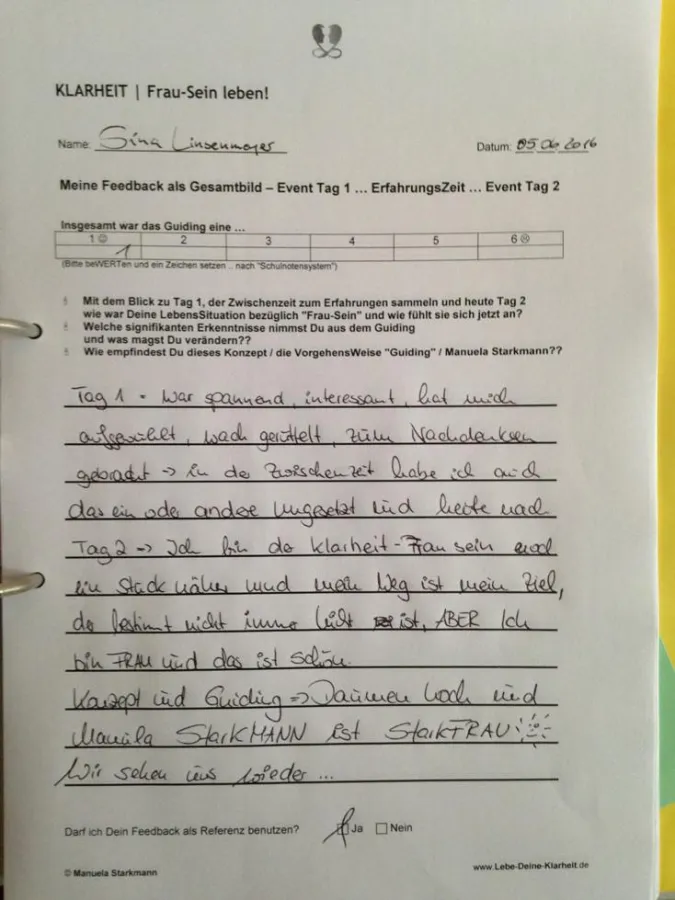 KLARHEIT | Frau-Sein leben!
Name: Gina Linsenmayer
Datum: 05 06 2016
Meine Feedback als Gesamtbild – Event Tag 1 ... ErfahrungsZeit ... Event Tag 2
Insgesamt war das Guiding eine ...
1 ☺ 2 3 4 5 6 ☹
1
(Bitte beWERTen und ein Zeichen setzen .. nach "Schulnotensystem")
Mit dem Blick zu Tag 1, der Zwischenzeit zum Erfahrungen sammeln und heute Tag 2
wie war Deine LebensSituation bezüglich "Frau-Sein" und wie fühlt sie sich jetzt an?
Welche signifikanten Erkenntnisse nimmst Du aus dem Guiding
und was magst Du verändern??
Wie empfindest Du dieses Konzept / die VorgehensWeise "Guiding" / Manuela Starkmann??
Tag 1 - War spannend, interessant, hat mich
aufgewühlt, wach gerüttelt, zum Nachdenken
gebracht → in der Zwischenzeit habe ich auch
das ein oder andere umgesetzt und heute nach
Tag 2 → Ich bin der Klarheit-Frau sein noch
ein Stück näher und mein Weg ist mein Ziel,
der bestimmt nicht immer leicht ist, ABER Ich
bin FRAU und das ist schön.
Konzept und Guiding → Daumen hoch und
Manuela StarkMANN ist StarkFRAU
Wir sehen uns wieder ...
Darf ich Dein Feedback als Referenz benutzen? Ja Nein
© Manuela Starkmann
www.Lebe-Deine-Klarheit.de